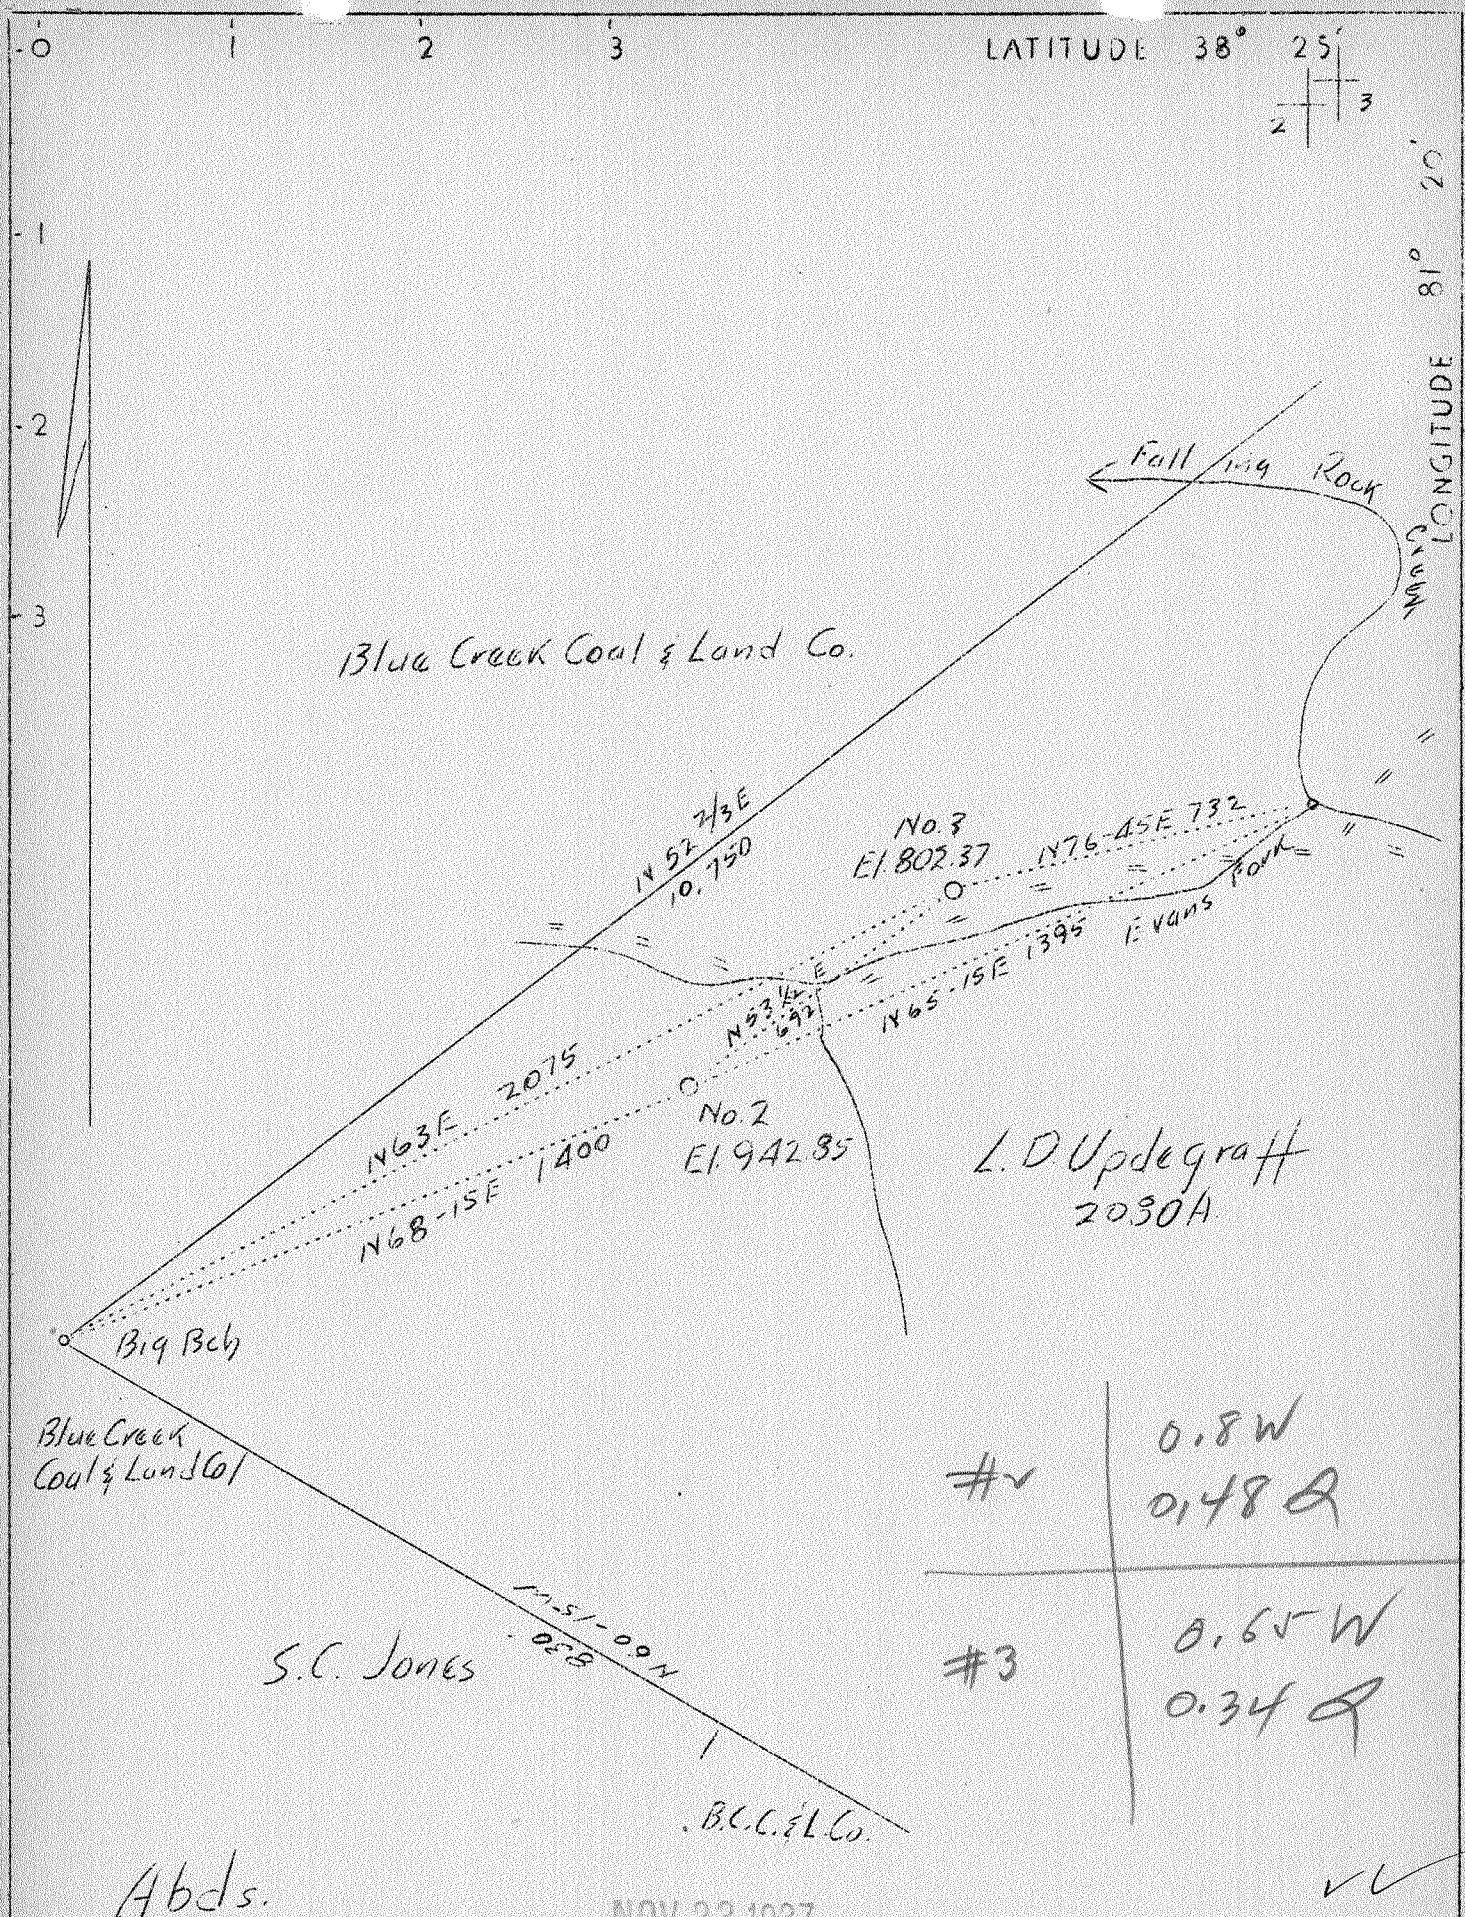 0 1 2 3 LATITUDE 38° 25'
2 3
LONGITUDE 81° 20'
1
2
3
Falling Rock
Creek
Blue Creek Coal & Land Co.
N 52 2/3 E
10.750
No. 3
El. 802.37
N76-45E 732
Evans Fork
N 53 1/2 E
692
N65-15E 1395
N63E 2075
N68-15E 1400
No. 2
El. 942.85
L. D. Updegraff
2030A
Big Bch
Blue Creek
Coal & Land Co
N 60-15 W
830
S.C. Jones
B.C.C. & L. Co.
#2
0.8 W
0.48
#3
0.65 W
0.34
Abds.